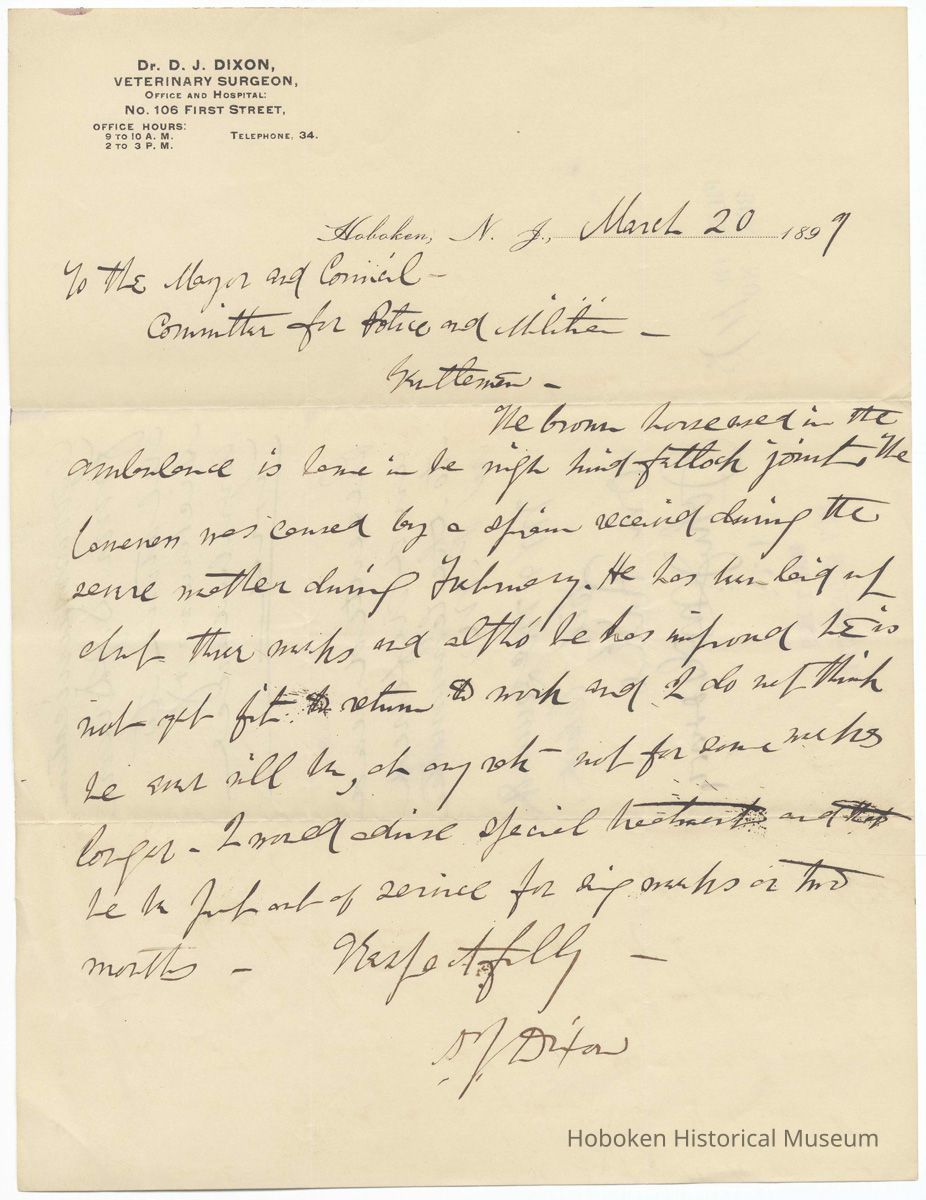 Dr. D. J. DIXON,
VETERINARY SURGEON,
OFFICE AND HOSPITAL:
No. 106 FIRST STREET,
OFFICE HOURS:
9 TO 10 A. M. TELEPHONE, 34.
2 TO 3 P. M.
Hoboken, N. J., March 20 1899
To the Mayor and Council -
Committee for Police and Militia -
Gentlemen -
The brown horse used in the
ambulance is lame in he nigh hind fetlock joint, The
lameness was caused by a sprain received during the
severe weather during February. He has been laid up
about three weeks and altho' he has improved he is
not yet fit to return to work and I do not think
he ever will be, at any rate not for some weeks
longer - I would advise special treatment and that
he be put out of service for six weeks or two
months - Respectfully -
D. J. Dixon
Hoboken Historical Museum